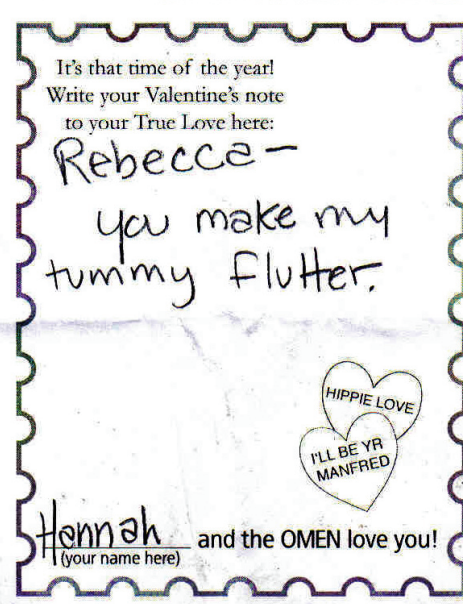 It's that time of the year!
Write your Valentine's note
to your True Love here:
Rebecca-
you make my
tummy flutter.
HIPPIE LOVE
I'LL BE YR
MANFRED
Hannah and the OMEN love you!
(your name here)